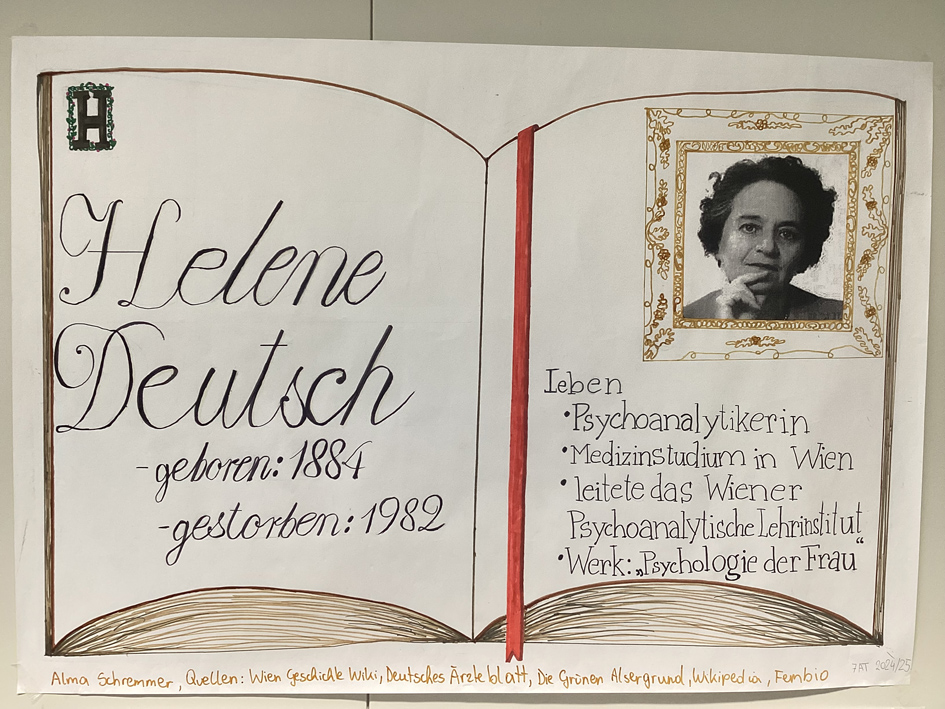 H
Helene
Deutsch
-geboren: 1884
-gestorben: 1982
Leben
•Psychoanalytikerin
•Medizinstudium in Wien
•leitete das Wiener
Psychoanalytische Lehrinstitut
•Werk: „Psychologie der Frau“
Alma Schremmer, Quellen: Wien Geschichte Wiki, Deutsches Ärzteblatt, Die Grünen Alsergrund, Wikipedia, Fembio
7AT 2024/25